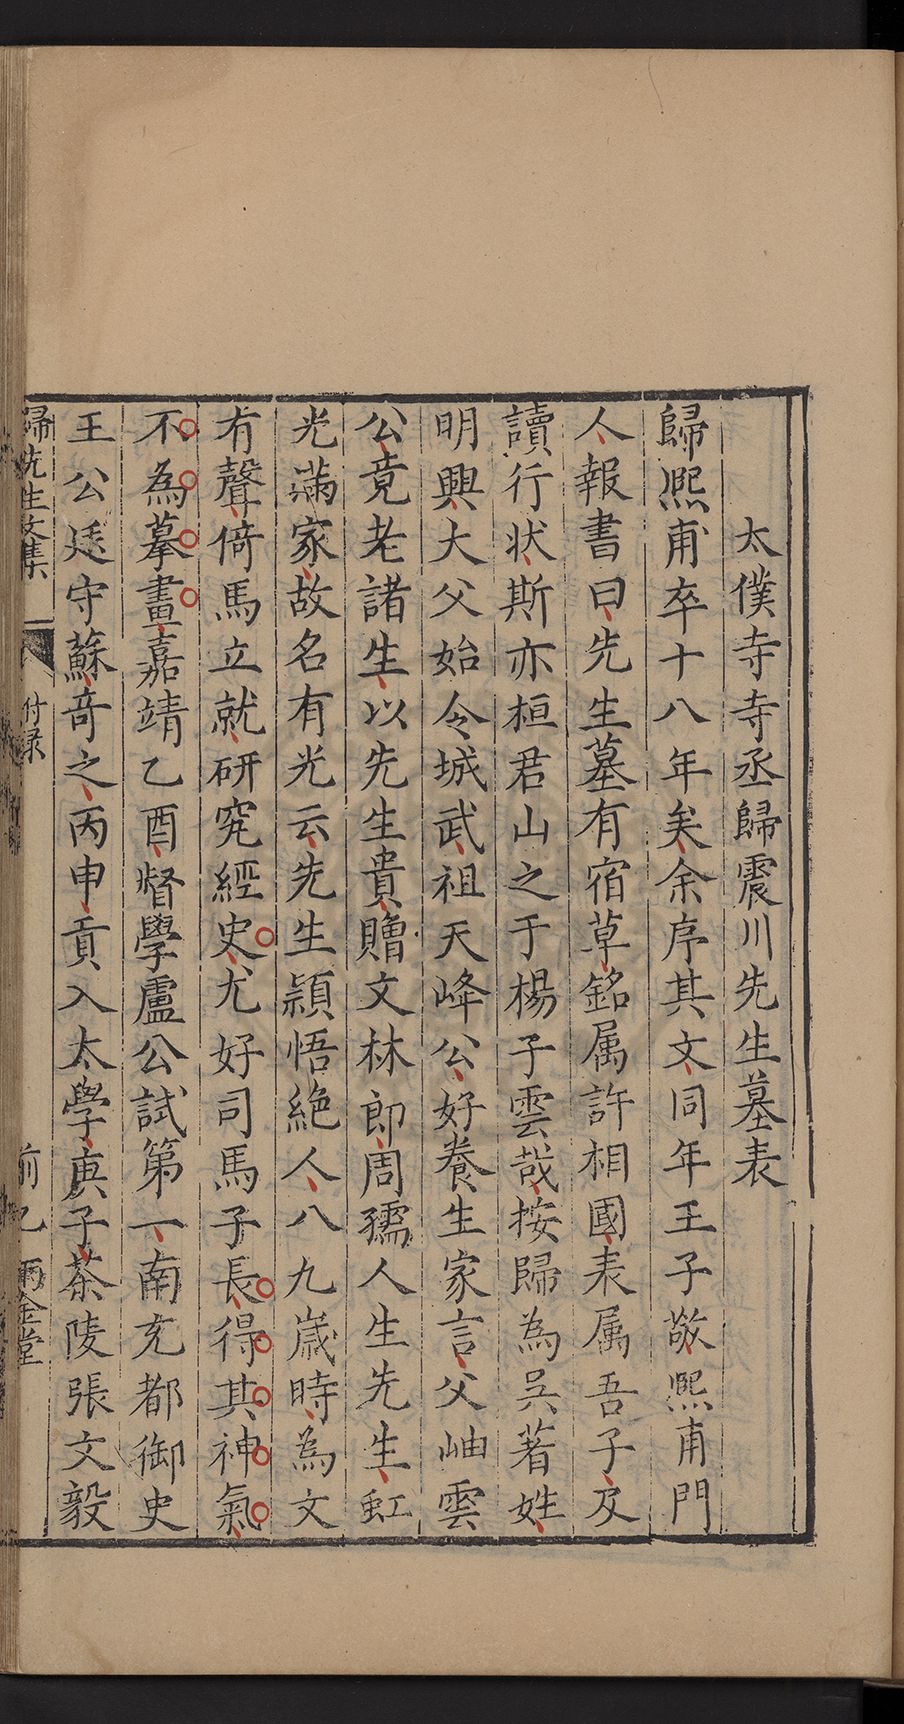 太僕寺寺丞歸震川先生墓表
歸熈甫卒十八年矣余序其文同年王子敬熈甫門
人報書曰先生墓有宿草銘属許相國表属吾子及
讀行状斯亦桓君山之于楊子雲哉按歸為吳著姓
明興大父始令城武祖天峰公好養生家言父岫雲
公竟老諸生以先生貴贈文林郎周孺人生先生虹
光滿家故名有光云先生頴悟絶人八九歳時為文
有聲倚馬立就研究經史尤好司馬子長得其神氣
不為摹畫嘉靖乙酉督學盧公試第一南充都御史
王公廷守蘇竒之丙申貢入太學庚子茶陵張文毅
歸先生文集 付录 前乙 兩金堂